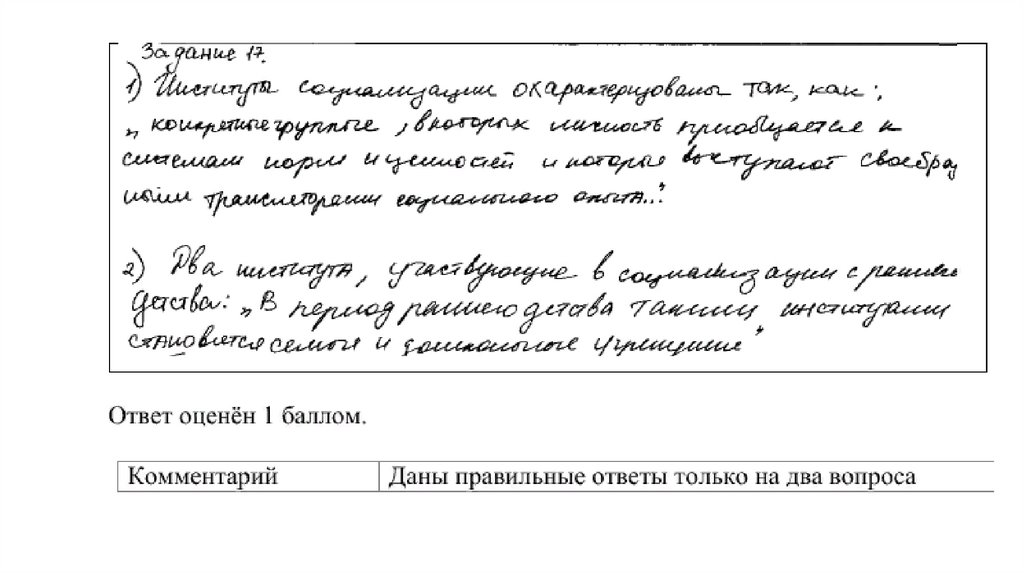 Задание 17.
1) Институты социализации охарактеризованы так, как:
„ конкретные группы, в которых личность приобщается к
системам норм и ценностей и которые выступают своеобраз
ными трансляторами социального опыта..."
2) Два института, участвующие в социализации с раннего
детства: „В период раннего детства такими институтами
становятся семья и дошкольные учреждение"
Ответ оценён 1 баллом.
Комментарий Даны правильные ответы только на два вопроса